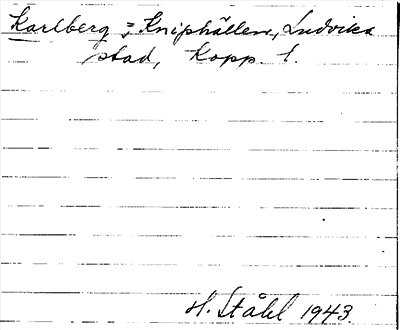 Karlberg = Kniphällen, Ludvika
stad, Kopp. l.
H. Ståhl 1943